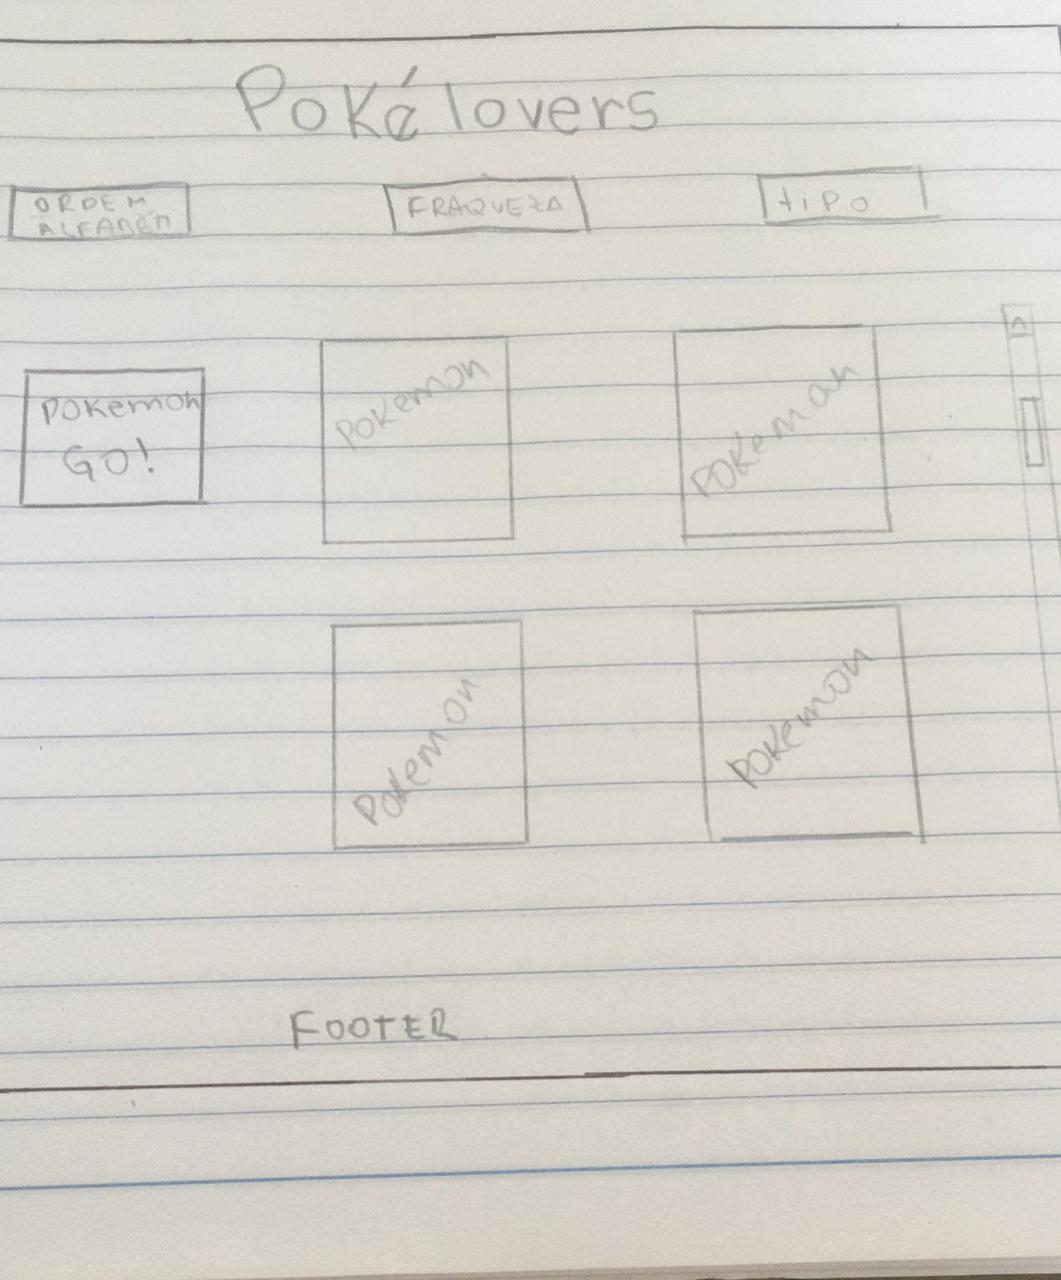 Poké lovers
ORDEM
ALFABÉT
FRAQUEZA
tiPO
POKemon
GO!
POKemon
POKemon
POKemon
POKemon
FOOTER